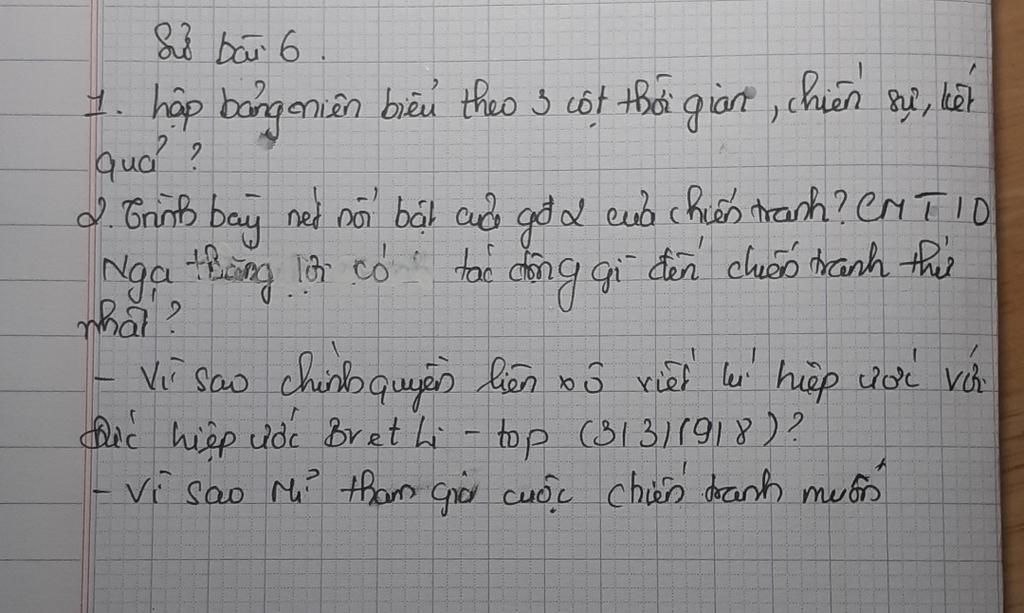 Sử bài 6.
1. hập bảng niên biểu theo 3 cột thời gian, chiến sự, kết
quả?
2. Trình bày nét nổi bật của gđ 2 của chiến tranh? CM T10
Nga thắng lợi có tác động gì đến chiến tranh thứ
nhất?
- Vì sao chính quyền liên xô viết kí hiệp ước với
Đức hiệp ước Bret Li - top (3/3/1918)?
- Vì sao Mĩ tham gia cuộc chiến tranh muốn